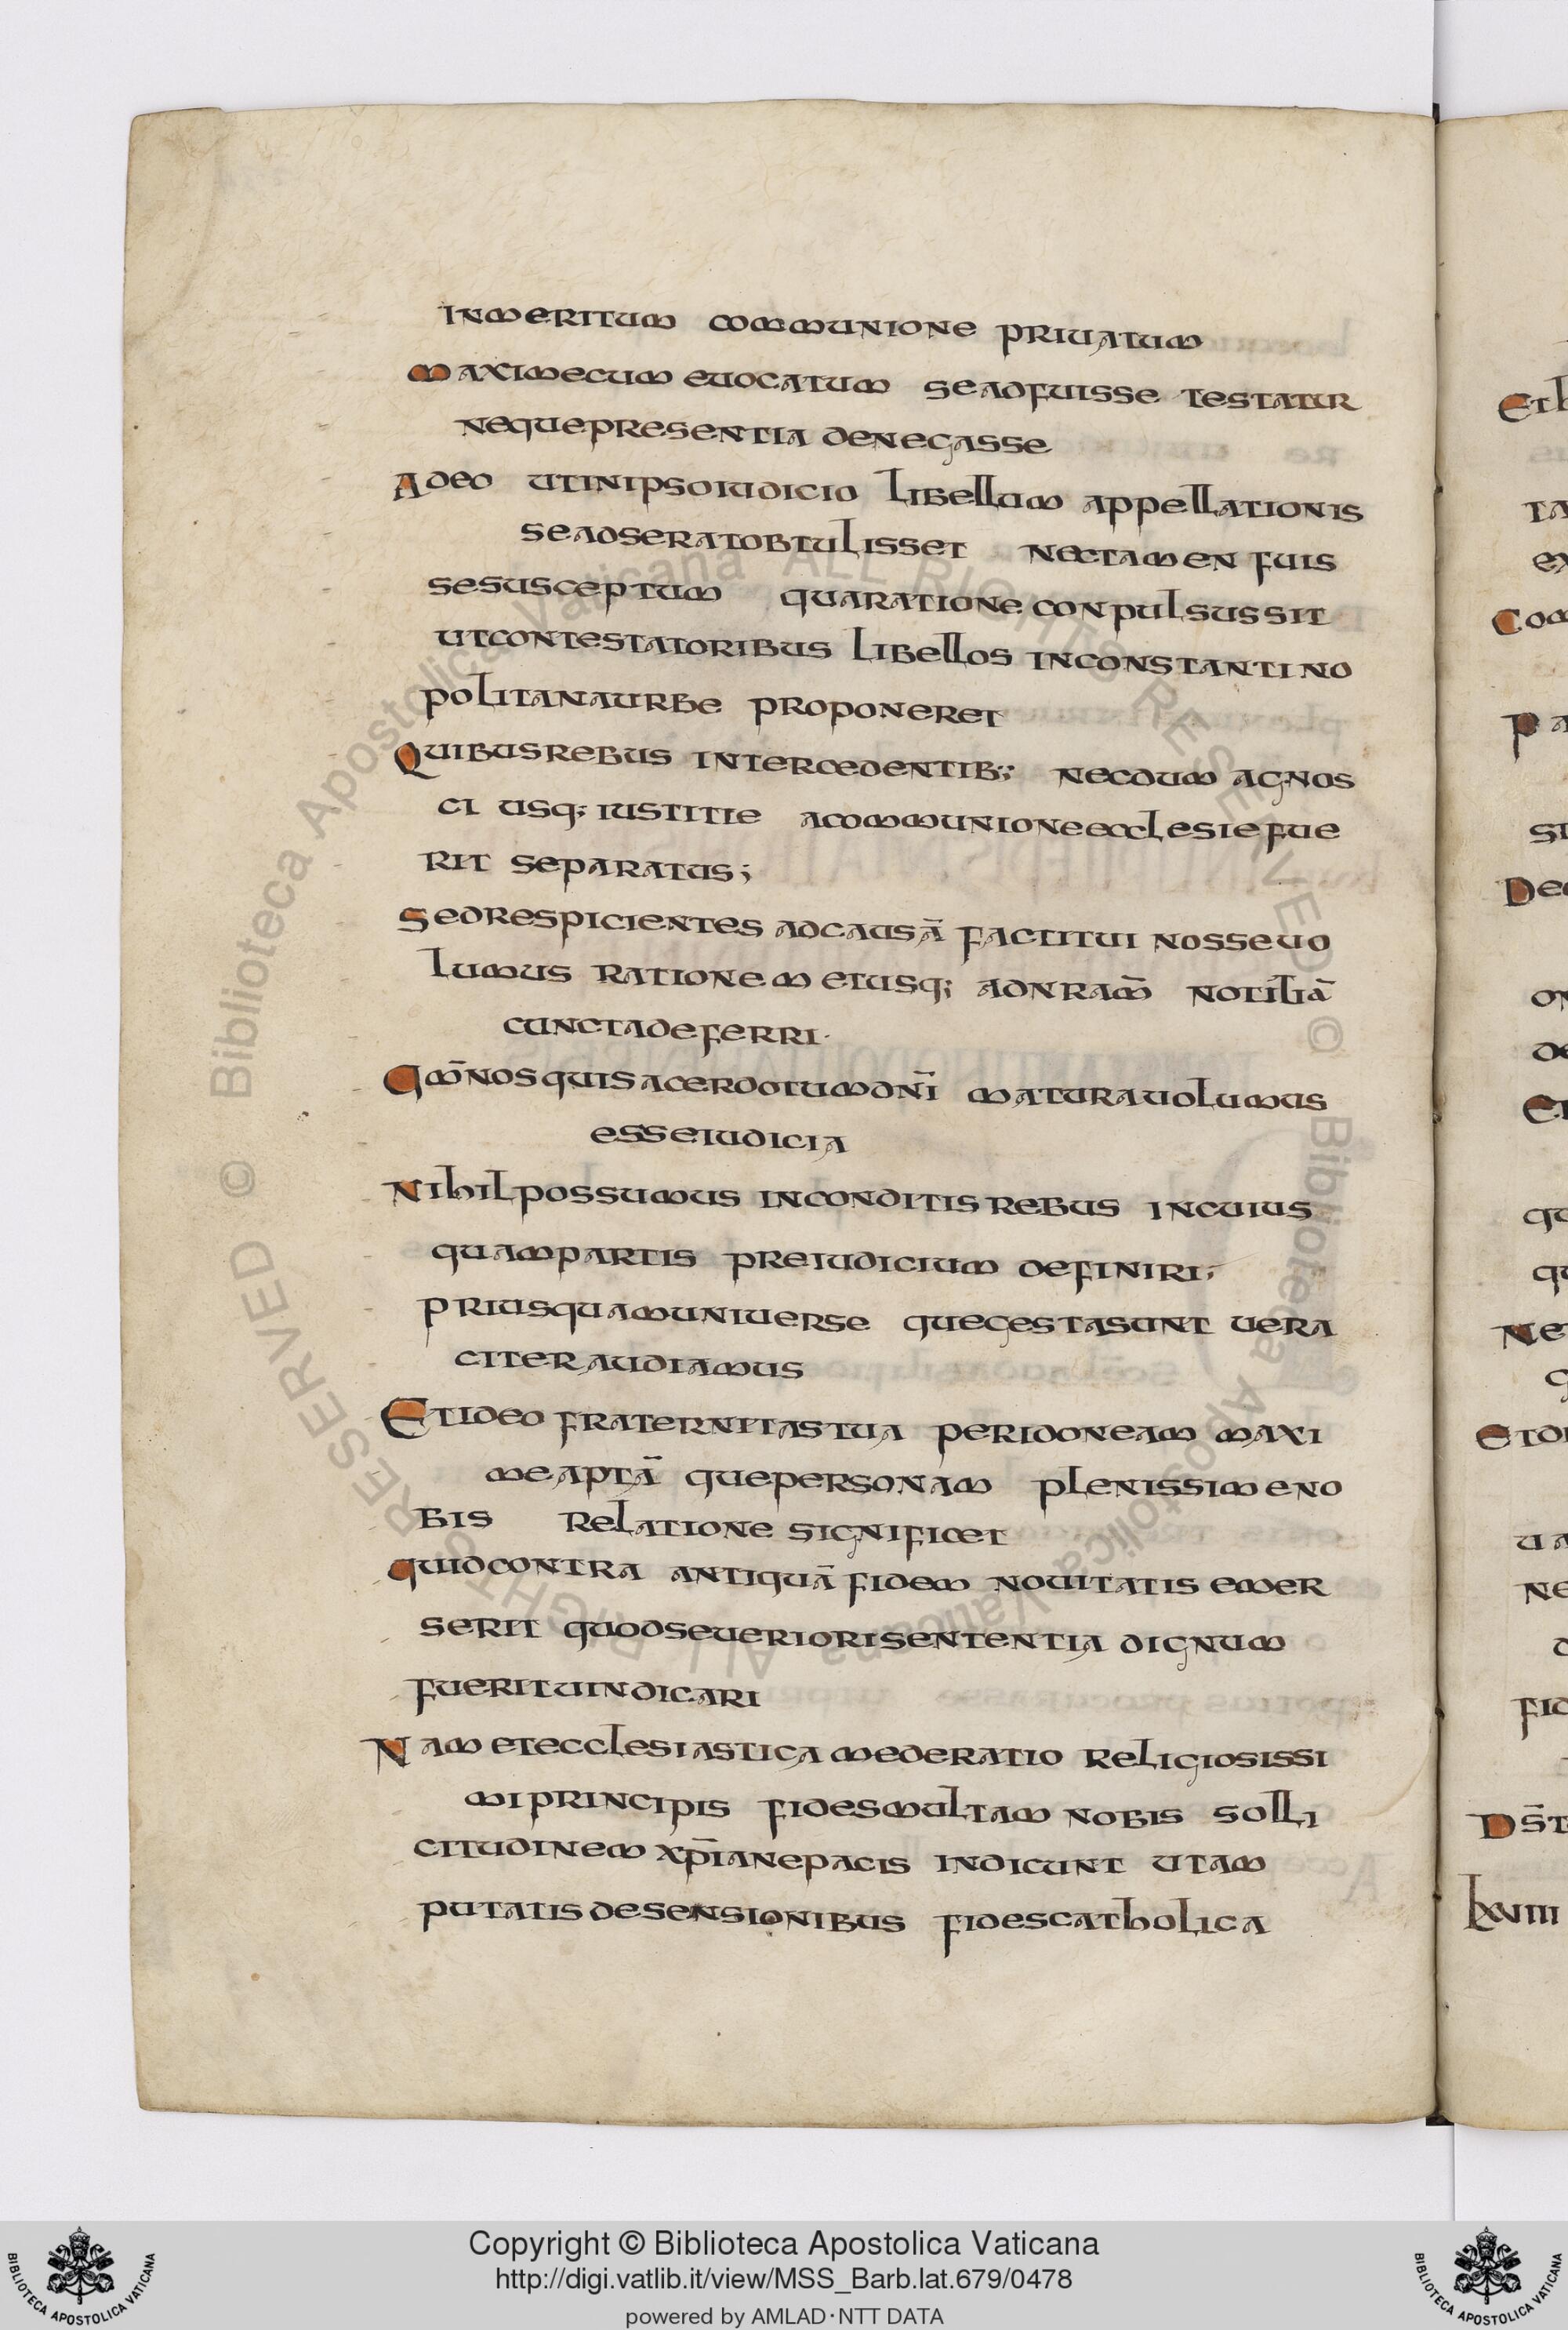 inmeritum communione priuatum
maximecum euocatum seadfuisse testatur
nequepresentia denegasse
Adeo utinipsoiudicio libellum appellationis
seadseratobtulisset nectamen fuis
sesusceptum quaratione conpulsussit
utcontestatoribus libellos inconstantino
politanaurbe proponeret
Quibusrebus intercedentib;; necdum agnos
ci usq; iustitie acommunioneecclesiefue
rit separatus;
Sedrespicientes adcausā factitui nosseuo
lumus rationem eiusq; adnram̄ notitiā
cunctadeferri·
Qm̄nosquisacerdotumdn̄i maturauolumus
esseiudicia
Nihilpossumus inconditisrebus incuius
quampartis preiudicium definiri;
priusquamuniuerse quegestasunt uera
citeraudiamus
Etideo fraternitastua peridoneam maxi
meaptā quepersonam plenissimeno
bis relatione significet
quidcontra antiquā fidem nouitatis emer
serit quodseueriorisententia dignum
fuerituindicari
Nam etecclesiastica mederatio religiosissi
miprincipis fidesmultam nobis solli
citudinem xp̄ianepacis indicunt utam
putatisdesensionibus fidescatholica
Copyright © Biblioteca Apostolica Vaticana
http://digi.vatlib.it/view/MSS_Barb.lat.679/0478
powered by AMLAD·NTT DATA